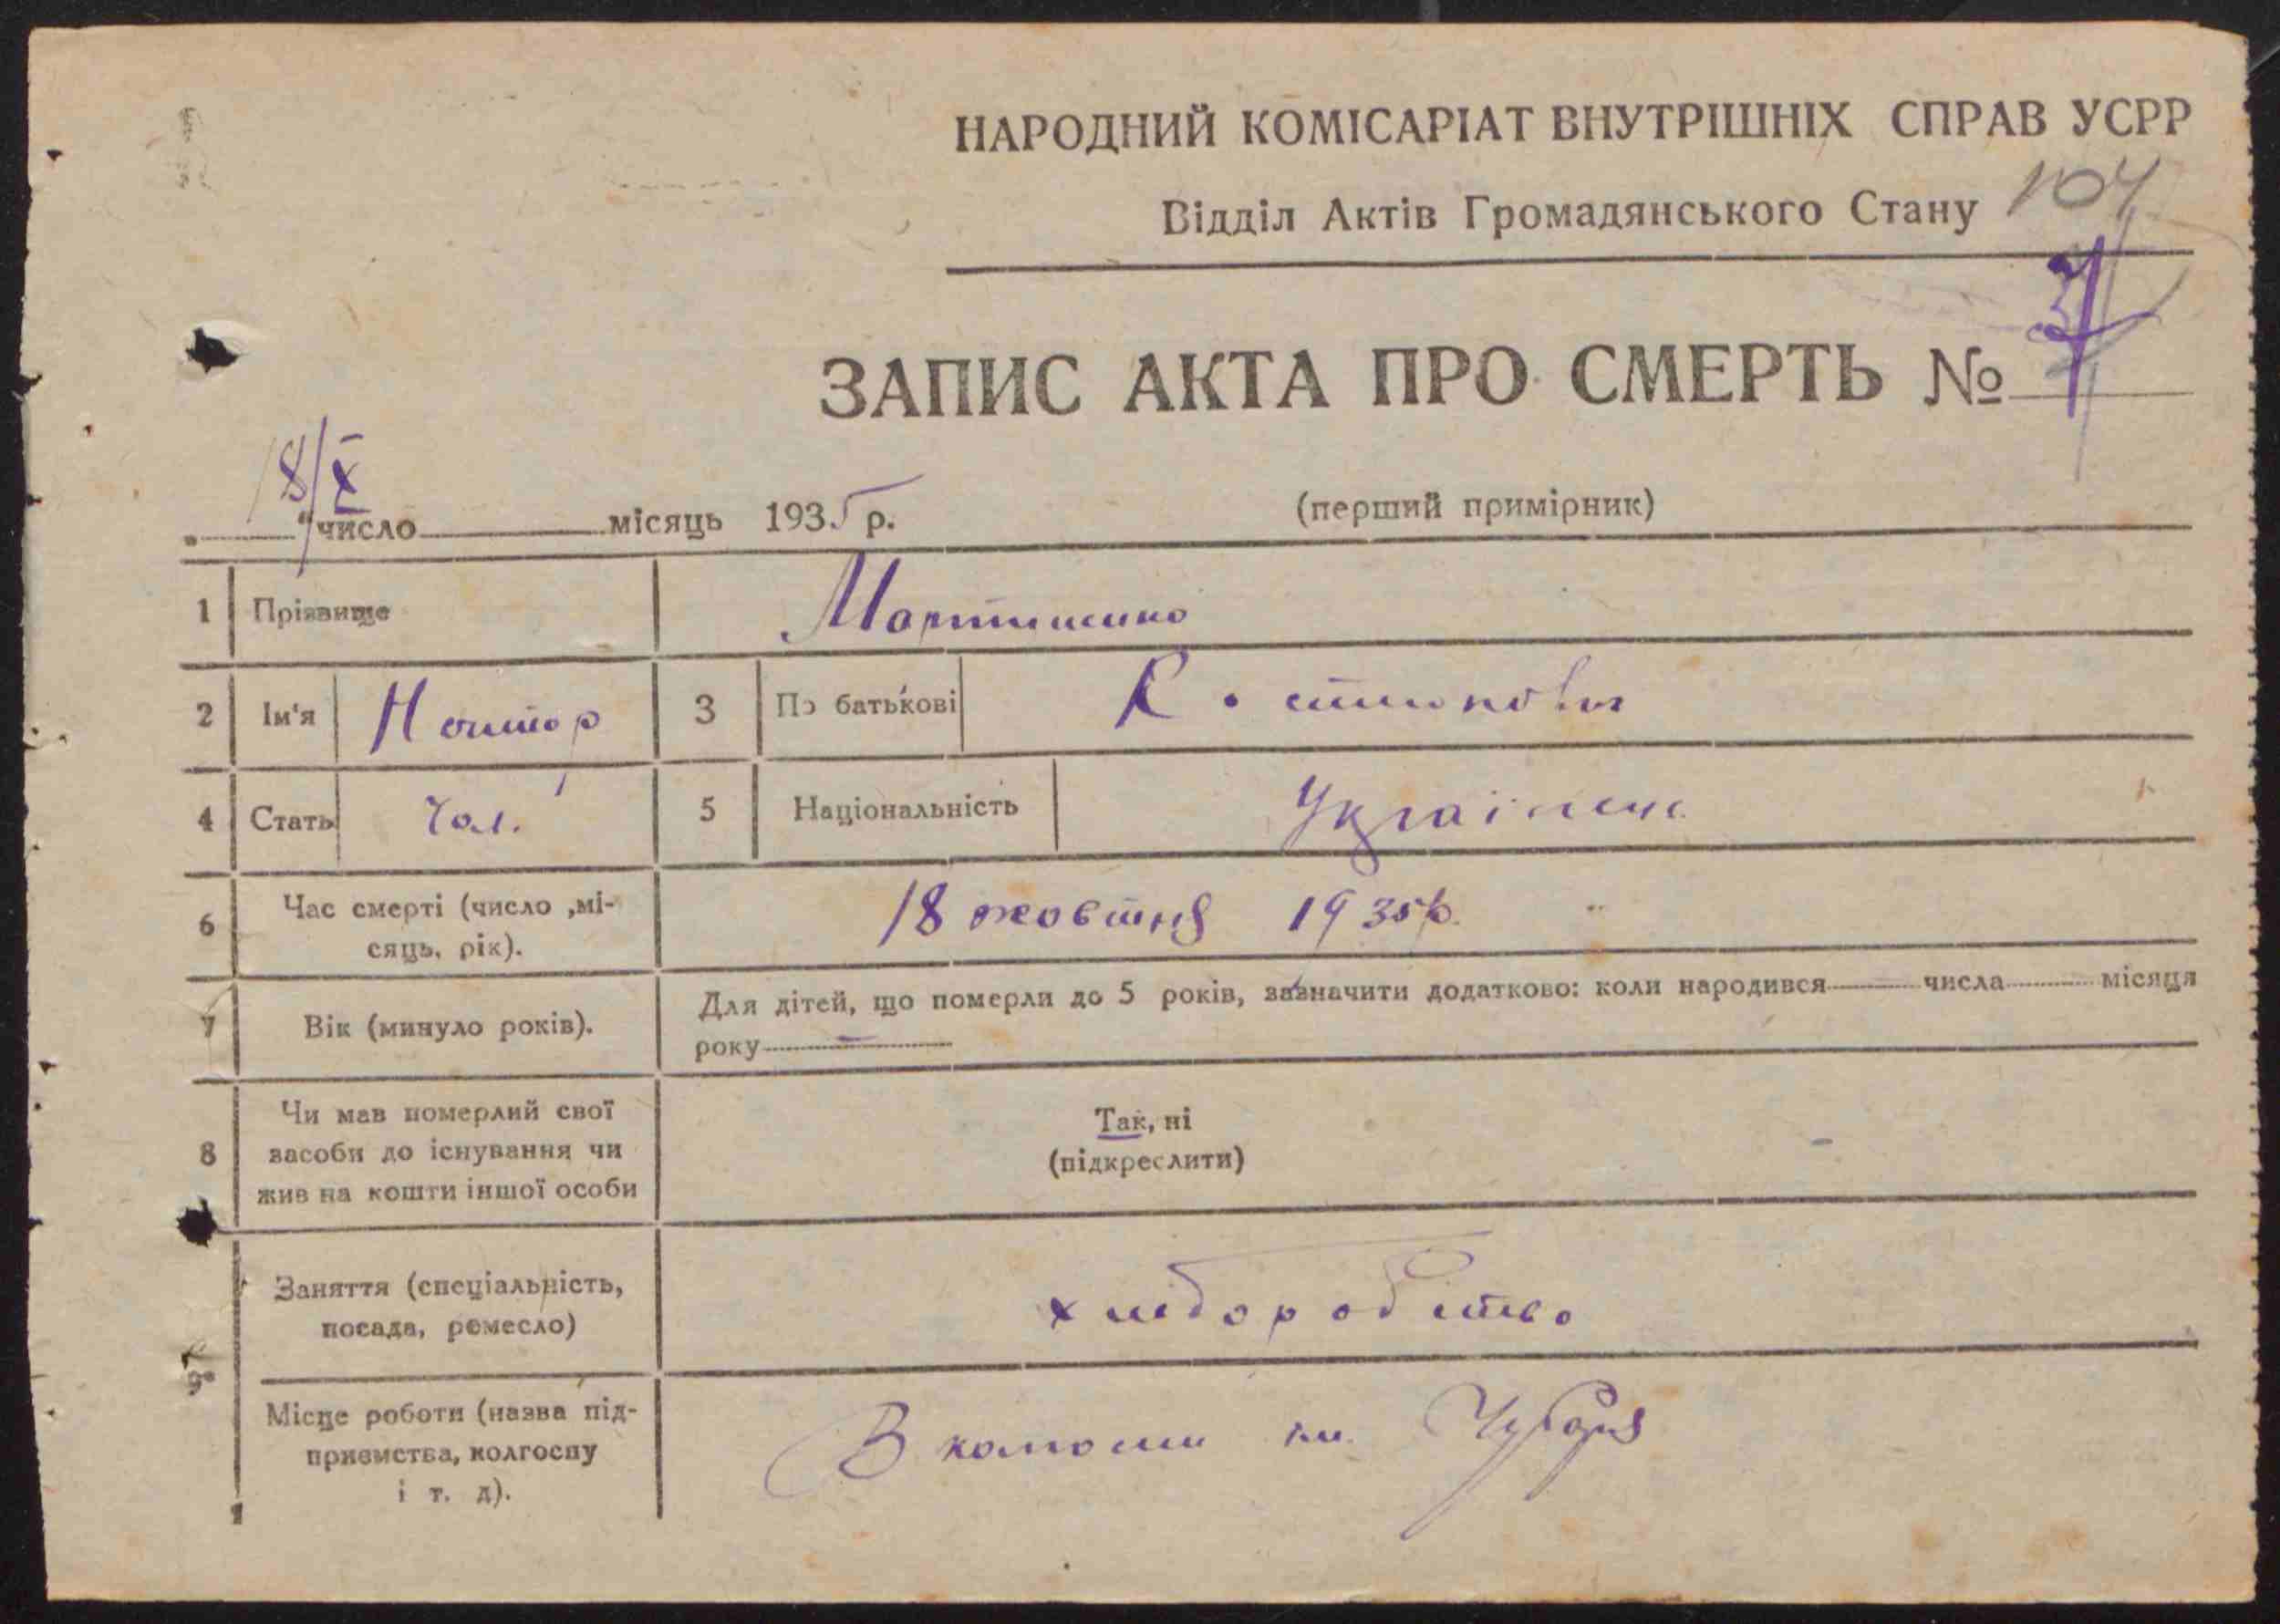 НАРОДНИЙ КОМІСАРІАТ ВНУТРІШНІХ СПРАВ УСРР
Відділ Актів Громадянського Стану 104
ЗАПИС АКТА ПРО СМЕРТЬ №
18/X
" число місяць 1935 р.
(перший примірник)
1 Прізвище Мартиненко
2 Ім'я Нестор 3 По батькові
4 Стать Чол. 5 Національність Українец
6 Час смерті (число ,мі-
сяць, рік).
18 жовтня 1935 р.
7 Вік (минуло років).
Для дітей, що померли до 5 років, зазначити додатково: коли народився числа місяця
року —
8 Чи мав померлий свої
засоби до існування чи
жив на кошти іншої особи
Так, ні
(підкреслити)
9 Заняття (спеціальність,
посада, ремесло)
хліборобство
Місце роботи (назва під-
приємства, колгоспу
і т. д).
В колгоспі ім. Чубаря